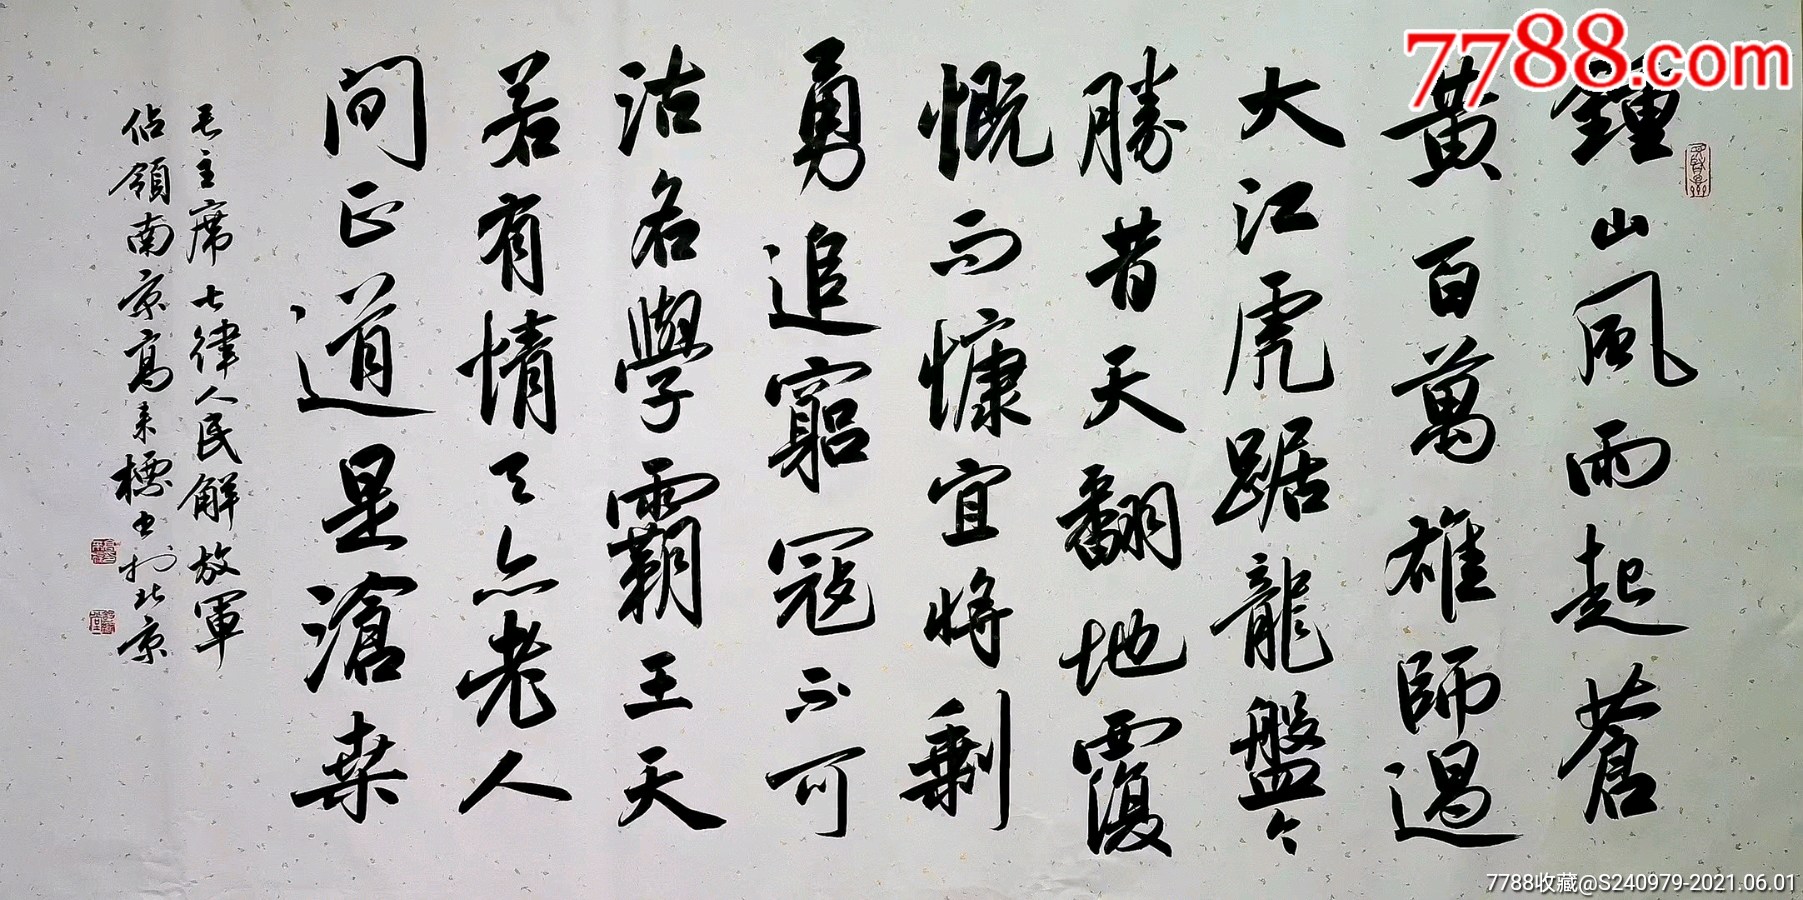 鍾山風雨起蒼
黃百萬雄師過
大江虎踞龍盤今
勝昔天翻地覆
慨而慷宜將剩
勇追窮寇不可
沽名學霸王天
若有情天亦老人
间正道是滄桑
毛主席七律人民解放軍
佔領南京高来標書於北京
7788.com
7788收藏@S240979-2021.06.01